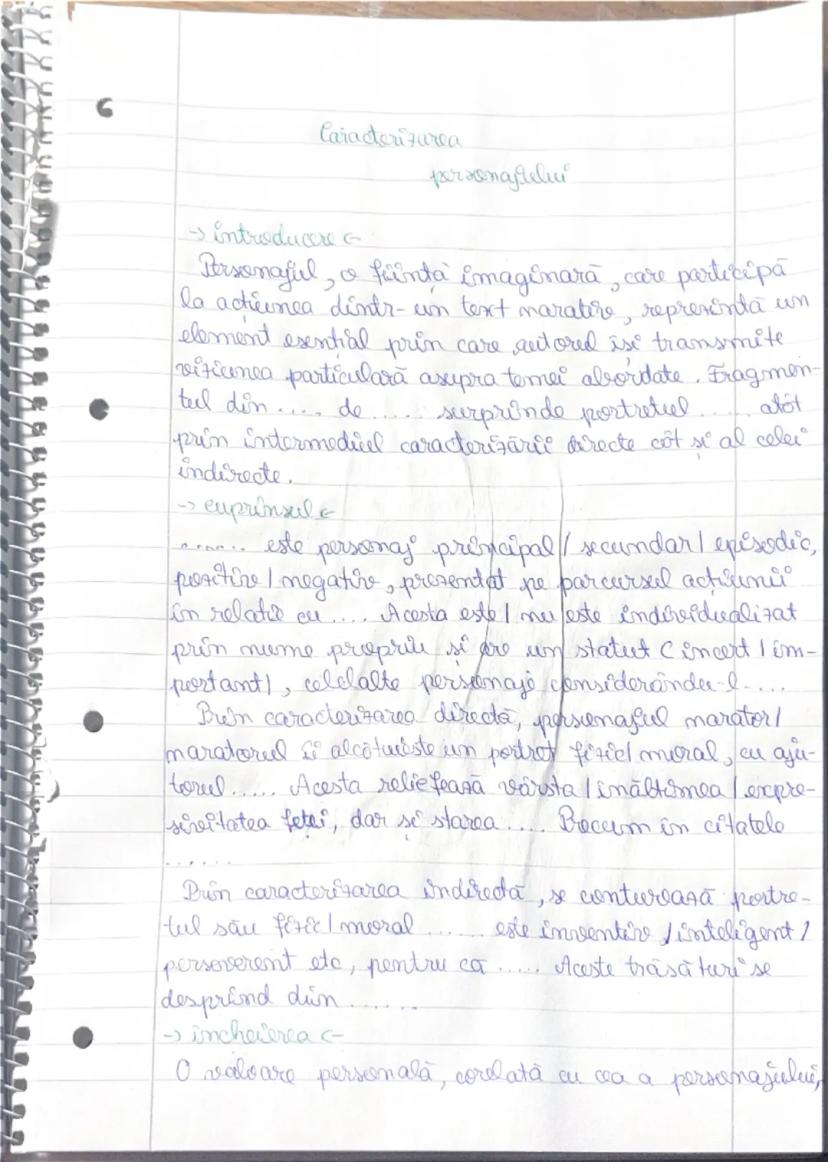 6
Caracterizarea
personajului
→ introducere ←
Personajul, o ființă imaginară, care participă
la acțiunea dintr-un text narativ, reprezintă un
element esențial prin care autorul își transmite
viziunea particulară asupra temei abordate. Fragmen-
tul din .... de ..... surprinde portretul ..... atât
prin intermediul caracterizării directe cât și al celei
indirecte.
→ cuprinsul ←
...... este personaj principal / secundar / episodic,
pozitiv / negativ, prezentat pe parcursul acțiunii
în relație cu .... Acesta este / nu este individualizat
prin nume propriu și are un statut ( incert / im-
portant ) , celelalte personaje considerându-l ....
Prin caracterizarea directă, personajul narator /
naratorul îi alcătuiește un portret fizic / moral, cu aju-
torul ..... Acesta reliefează vârsta / înălțimea / expre-
sivitatea feței, dar și starea .... Precum în citatele
......
Prin caracterizarea indirectă, se conturează portre-
tul său fizic / moral ...... este inventiv / inteligent /
perseverent etc, pentru că ..... Aceste trăsături se
desprind din .......
→ încheierea ←
O valoare personală, corelată cu cea a personajului,